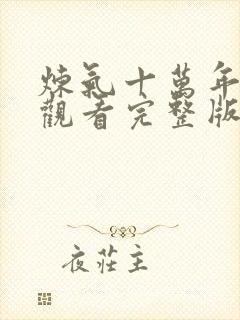 煉氣十萬年
觀看完整版
夜莊主